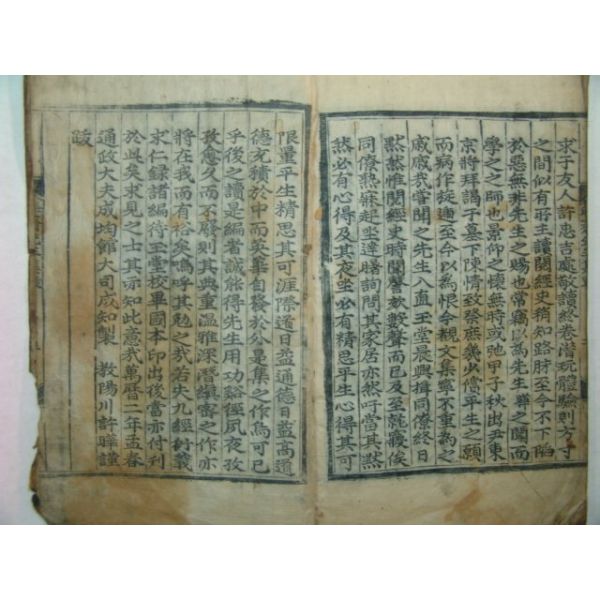 求子友人許忠吉處敬讀終卷潛玩體驗則方寸
之間似有所主讀閱經史稍知路脉至今不下陷
於惡無非先生之賜也常竊以爲先生之聞而
學之之師也景仰之懷無時或弛甲子秋出尹東
京將拜謁于墓下陳情致祭庶幾少償平生之願
而病作旋遞至今以爲恨今觀文集寧不重爲之
戚戚哉嘗聞之先生入直玉堂晨興揖同僚終日
默然惟閱經史時聞謦欬數聲而已及至就寢俟
同僚熟寐起坐達曙詢問其家居亦然吁當其默
然必有心得及其夜坐必有精思平生心得其可
限量平生精思其可涯際道日益通德日益高道
德充積於中而英華自發於外是集之作烏可已
乎後之讀是編者誠能得先生用功谿徑夙夜孜
孜愈久而不廢則其典重溫雅深潛縝密之作亦
將在我而有裕矣嗚呼其勉之哉若夫九經衍義
求仁錄諸編待玉堂校畢國本印出後當亦付刊
於此矣求見之士其亦知此意哉萬曆二年孟春
通政大夫成均館大司成知製 敎陽川許曄謹
跋